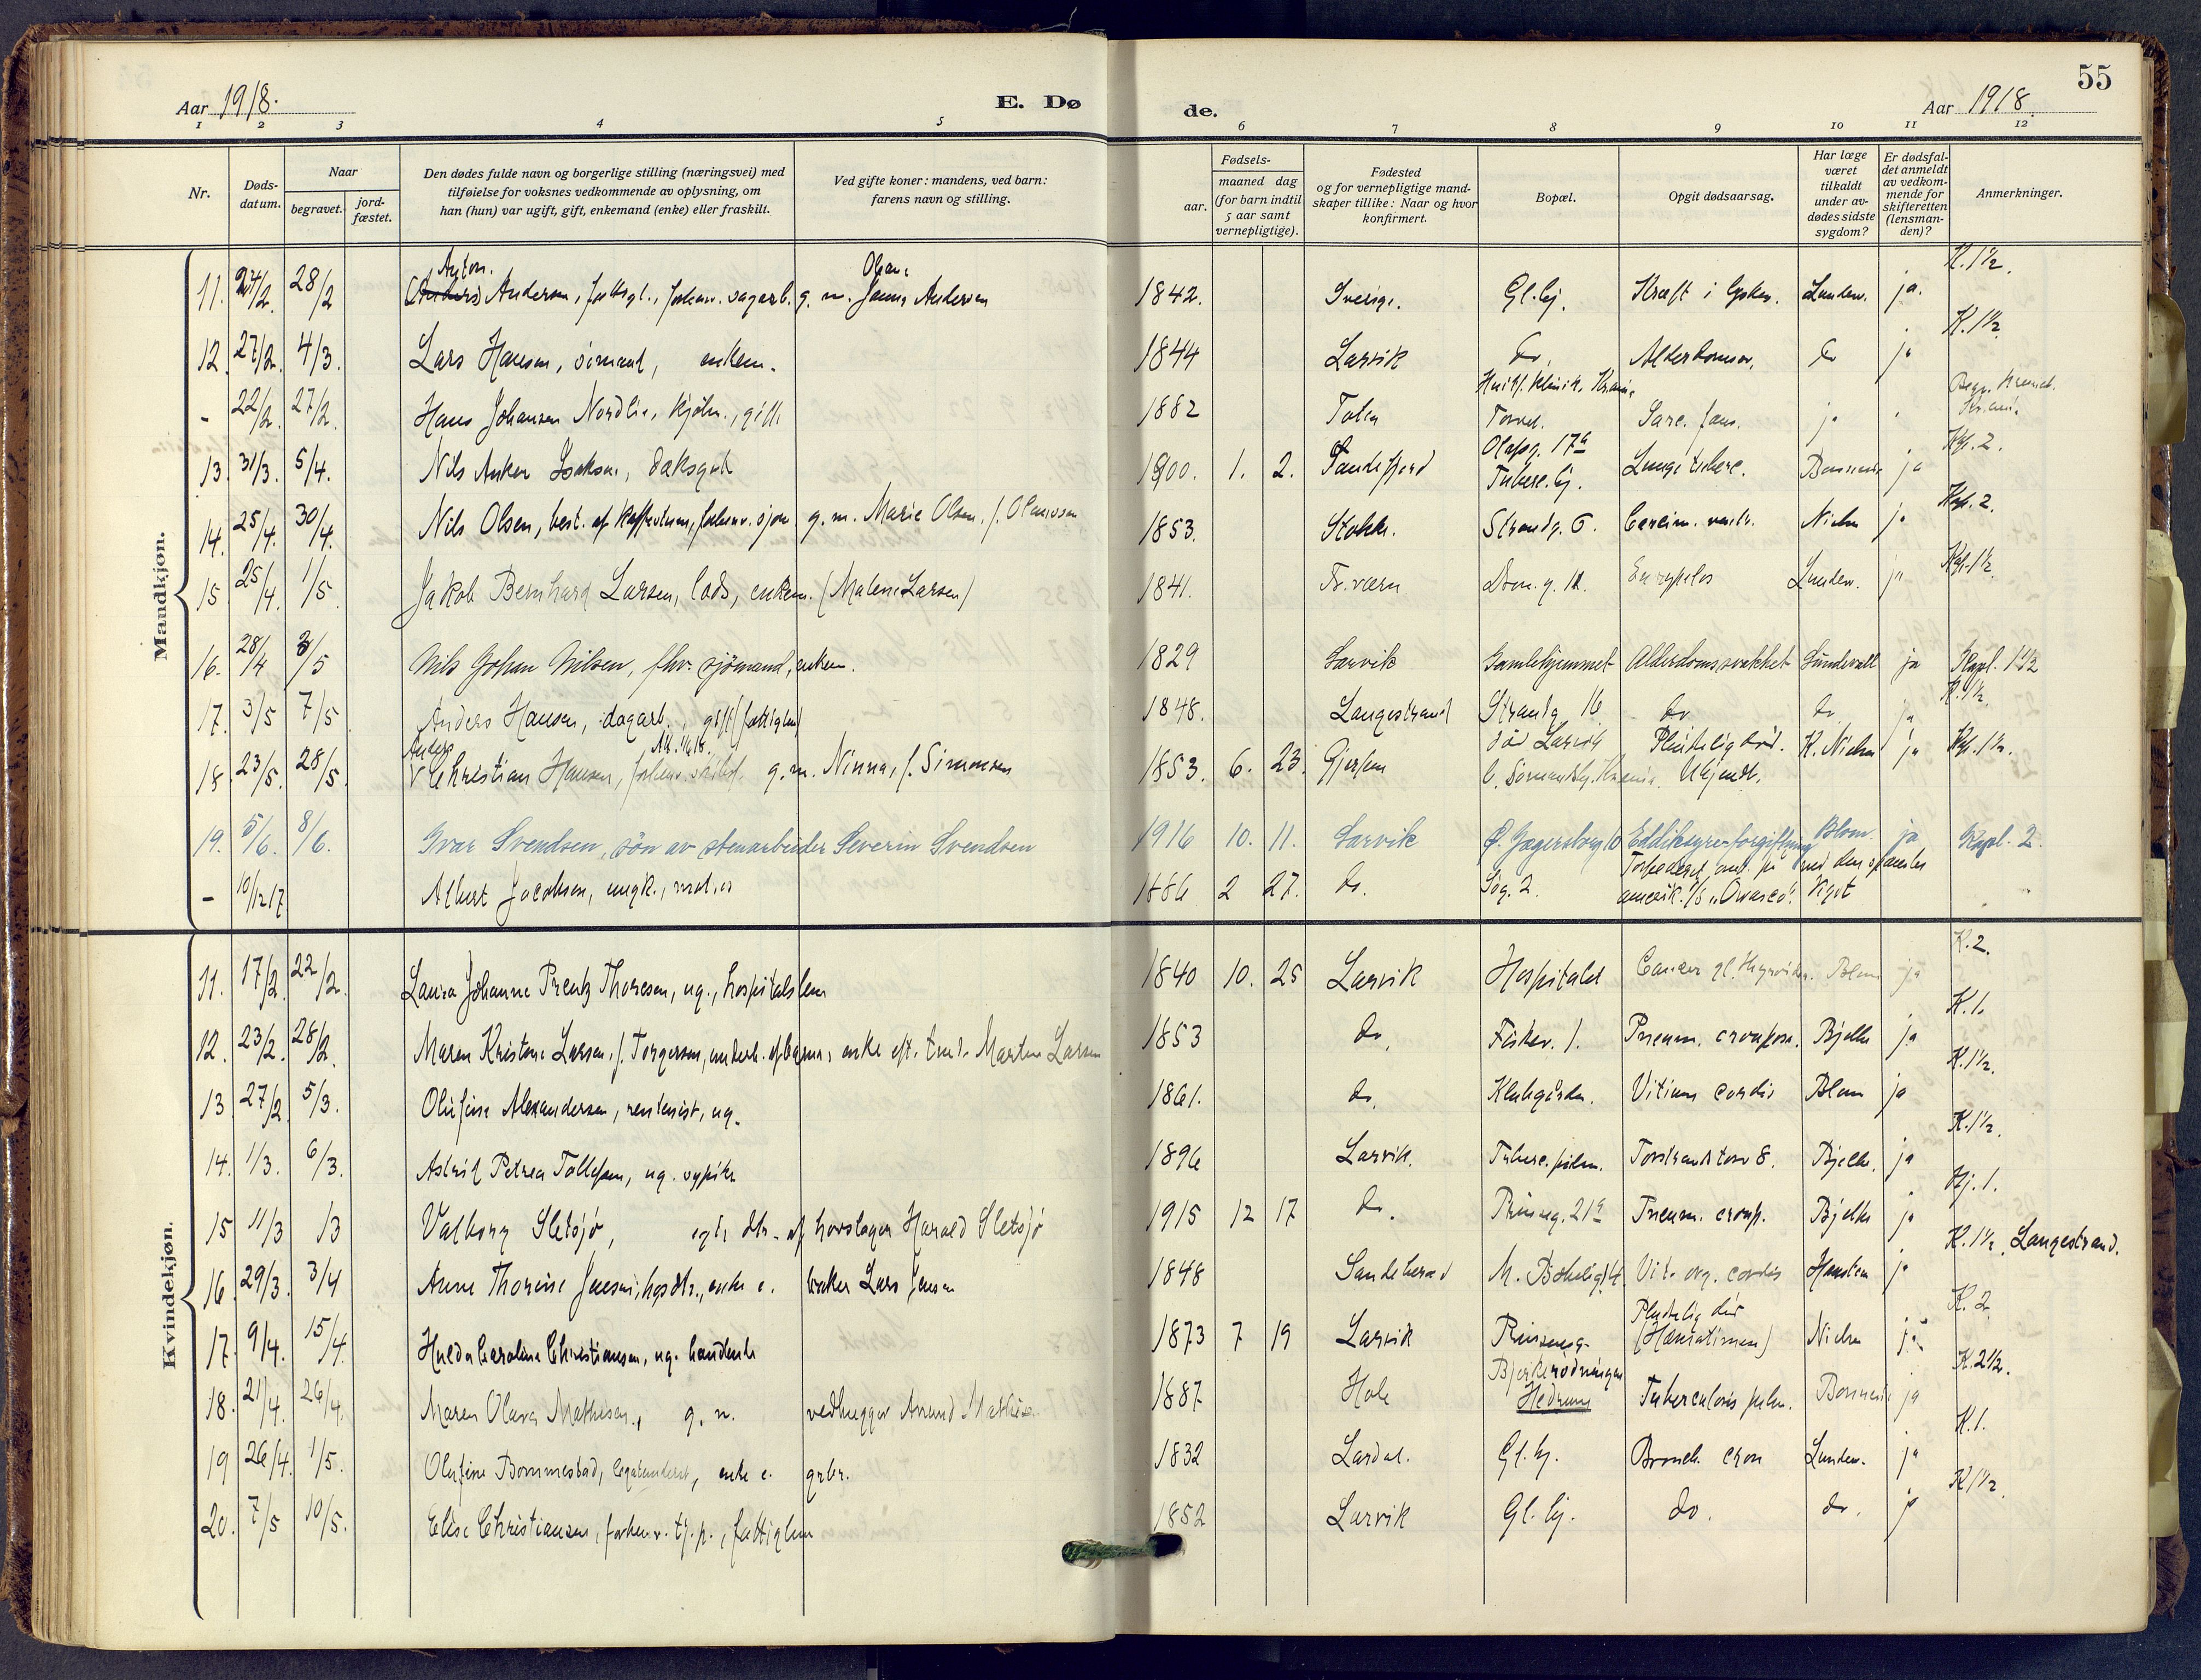 55
Aar 1918.
E. Dø
de.
Aar 1918.
1 2 3 4 5 6 7 8 9 10 11 12
Nr.
Døds-
datum.
Naar
begravet.
jord-
fæstet.
Den dødes fulde navn og borgerlige stilling (næringsvei) med
tilføielse for voksnes vedkommende av oplysning, om
han (hun) var ugift, gift, enkemand (enke) eller fraskilt.
Ved gifte koner: mandens, ved barn:
farens navn og stilling.
Fødsels-
aar.
maaned dag
(for barn indtil
5 aar samt
vernepligtige).
Fødested
og for vernepligtige mand-
skaper tillike: Naar og hvor
konfirmert.
Bopæl.
Opgit dødsaarsag.
Har læge
været
tilkaldt
under av-
dødes sidste
sygdom?
Er dødsfal-
det anmeldt
av vedkom-
mende for
skifteretten
(lensman-
den)?
Anmerkninger.
Mandkjøn.
Anton.
11. 24/2. 28/2 (Anders) Andersen, forhenv. sagarb. g. m. Andersen 1842. Sverige. Gl.hj. Kræft i Lunden. ja. K. 1½.
12. 27/2. 4/3. Lars Hansen, sømand, enkem. 1844 Larvik do. do ja K. 1½
- 22/2. 27/2. Hans Johansen Nordlie, gift 1882 Klinik, Krania Torvet. Sarc. ja
13. 31/3. 5/4. Nils Anker Isaksen, dæksgut 1900. 1. 2. Sandefjord Olafsg. 17a Tuberc.hj. Lungetuberc. ja Kpl. 2.
14. 25/4. 30/4. Nils Olsen, best. af forhenv. sjøm. g. m. Marie Olsen, f. Olausson 1853. Stokke. Strandg. 6. Nielsen ja Kpl. 2.
15 25/4. 1/5. Jakob Bernhard Larsen, lods, enkem. (Malene Larsen) 1841. Fr.værn Dron. g. 12. Lunden. ja Kpl. 1½.
16. 28/4 3/5 Nils Johan Nilsen, fhv. sjömand, enkem. 1829 Larvik Gamlehjemmet Alderdomssvakhet Lundevall ja Kapl. 1½
17. 3/5 7/5 Anders Hansen, dagarb., gift (fattiglem) 1848. Langestrand Strandg. 16 do do ja K. 1½.
Anders
18 23/5. 28/5. Christian Hansen, forhenv. g. m. Ninna, f. Simonsen 1853. 6. 23. Gjerpen død Larvik b. Sømandshj. Krania. Pludselig død. Ukjendt. K. Nielsen ja Kpl. 1½.
19. 5/6. 8/6. Ivar Svendsen, søn av stenarbeider Severin Svendsen 1916 10. 11. Larvik Ø. Jegersborg 10 Eddiksyre-forgiftning Blom. ja Kapl. 2.
- 10/12 17 Albert Jacobsen, ungk., matros 1886 2 27. do. Sog. 2. Torpederet omk. på med den spanske amerik. S/S „Owasco". Kgst
Kvindekjøn.
11. 17/2. 22/2. Laura Johanne Prentz Thoresen, ug., hospitalslem 1840 10. 25 Larvik Hospitalet Cancer gl. thyroidea. Blom ja K. 2.
12. 23/2. 28/2. Maren Kristine Larsen, f. Torgersen, underh. af børn, enke eft. tømd. Martin Larsen 1853 do. Fisker. 1. Pneum. crouposa. Bjelke ja K. 1.
13 27/2 5/3. Olufine Alexandersen, rentenist, ug. 1861. do. Klubgården. Vitium cordis Blom ja K. 1½.
14. 1/3. 6/3. Astrid Petrea Tollefsen, ug. sypike 1896 Larvik. Tuberc. pulm. Torstrand torv 8. Bjelke. ja K. 1½.
15 11/3 13 Valborg Sletsjø, egte dtr. af hovslager Harald Sletsjø 1915 12 17 do. Prinseg. 21a Pneum. croup. Bjelke ja Hj. 1.
16 29/3. 3/4 Anne Thorine Jensen, hosdtr., enke e. Lars Jensen 1848 Sandeherad M. Bøkelig. 14 Vit. org. cordis ja K. 1½. Langestrand.
17. 9/4. 15/4. Hulda Caroline Christiansen, ug. handlende 1873 7 19 Larvik Prinseng. Pludselig død (Hæmatimen) Nielsen ja K. 2
18. 21/4. 26/4. Maren Olava Mathisen, g. m. vedhugger Amund Mathisen 1887 Hole Bjerkerødningen Hedrum Tuberculosis pulm. ja K. 2½.
19 26/4. 1/5. Olufine Bommestad, enke e. grbr. 1832 Lardal. Gl. hj. Bronch. cron Lunden. ja K. 1.
20. 7/5 10/5. Elise Christiansen, forhenv. tj. p., fattiglem 1852 Larvik Gl. hj. do. do. ja K 1½.